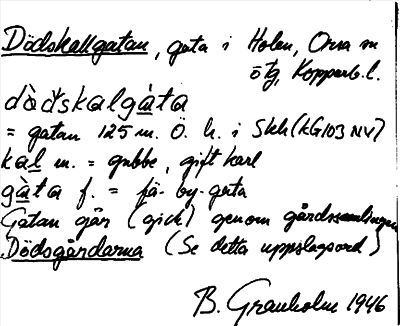 Dödskallgatan, gata i Holen, Orsa sn
ötg, Kopparb. l.
dò̀dskalgàta
= gatan 125 m. Ö. h. i Skh (KG103 NV)
kal m. = gubbe, gift karl
gàta f. = fä-by-gata
Gatan går (gick) genom gårdssamlingen
Dödsgårdarna (Se detta uppslagsord)
B. Granholm 1946